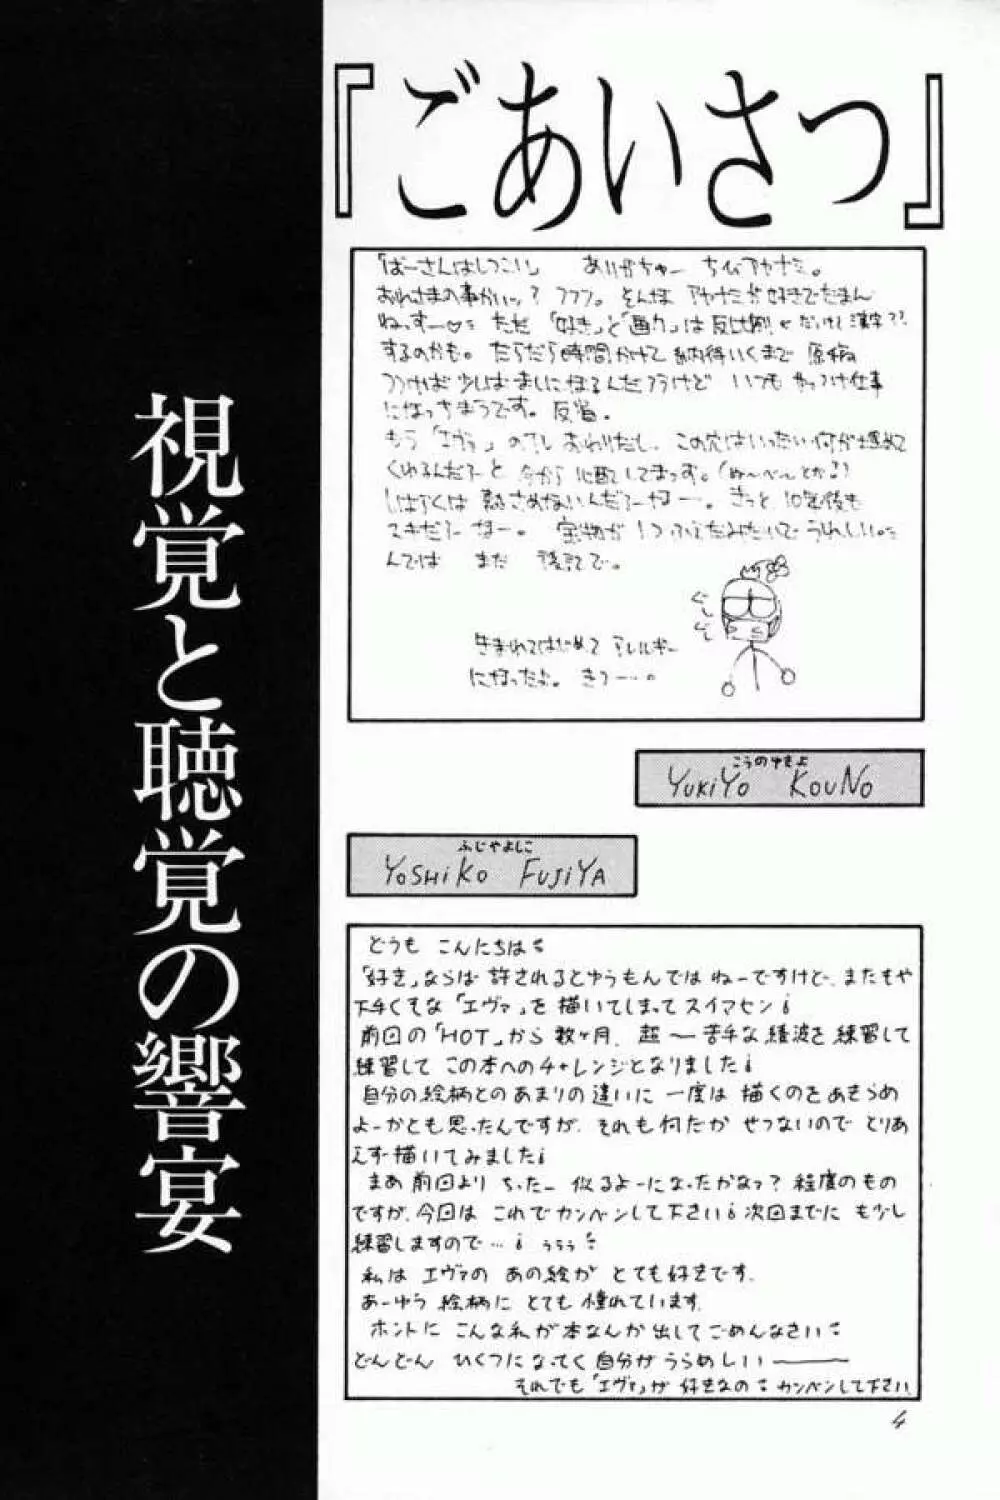 『ごあいさつ』
視覚と聴覚の響宴
「ばーさんはしつこい」 ありがちゅー ちびアヤナミ。
おれさまの事かいッ? フフフ。そんな アヤナミが好きでたまん
ねーっすー♡ ただ「好き」と「画力」は反比例 だっけ漢字??
するのかも。だらだら時間かけて 納得いくまで 原稿
つづけば 少しはましになるんだろうけど いつも やっつけ仕事
になっちまうです。反省。
もう「エヴァ」のTVしおわりだし、この穴はいったい何が埋めて
くれるんだろーと 今から心配してまっす。(ぬ〜べ〜とかる)
しばらくは 熱さめないんだろーなー。きっと 10年後も
スキだろーなー。 宝物が 1つふえたみたいで うれしい。
んでは また 後記で。
生まれてはじめて アレルギー
になったよ。きつー…。
こうのゆきよ
YUKIYO KOUNO
ふじやよしこ
YOSHIKO FUJIYA
どうも こんにちは
「好き」ならば 許されるとゆうもんでは ねーですけど、またもや
下手くそな「エヴァ」を 描いてしまって スイマセン!
前回の「HOT」から 数ヶ月、超〜苦手な 綾波を 練習して
練習して この本へのチャレンジとなりました!
自分の絵柄とのあまりの違いに 一度は 描くのをあきらめ
よーかとも 思ったんですが、それも何だか せつないので とりあ
えず描いてみました!
まあ 前回より ちったー 似るよーになったかなっ? 程度のもの
ですが、今回は これでカンベンして下さい! 次回までに もう少し
練習しますので…! ううう
私は エヴァの あの絵が とても好きです。
あーゆう 絵柄に とても 憧れています。
ホントに こんな私が 本なんか出して ごめんなさい
どんどん ひくつになってく自分がうらめしい———
それでも「エヴァ」が 好きなの カンベンして下さい。
4